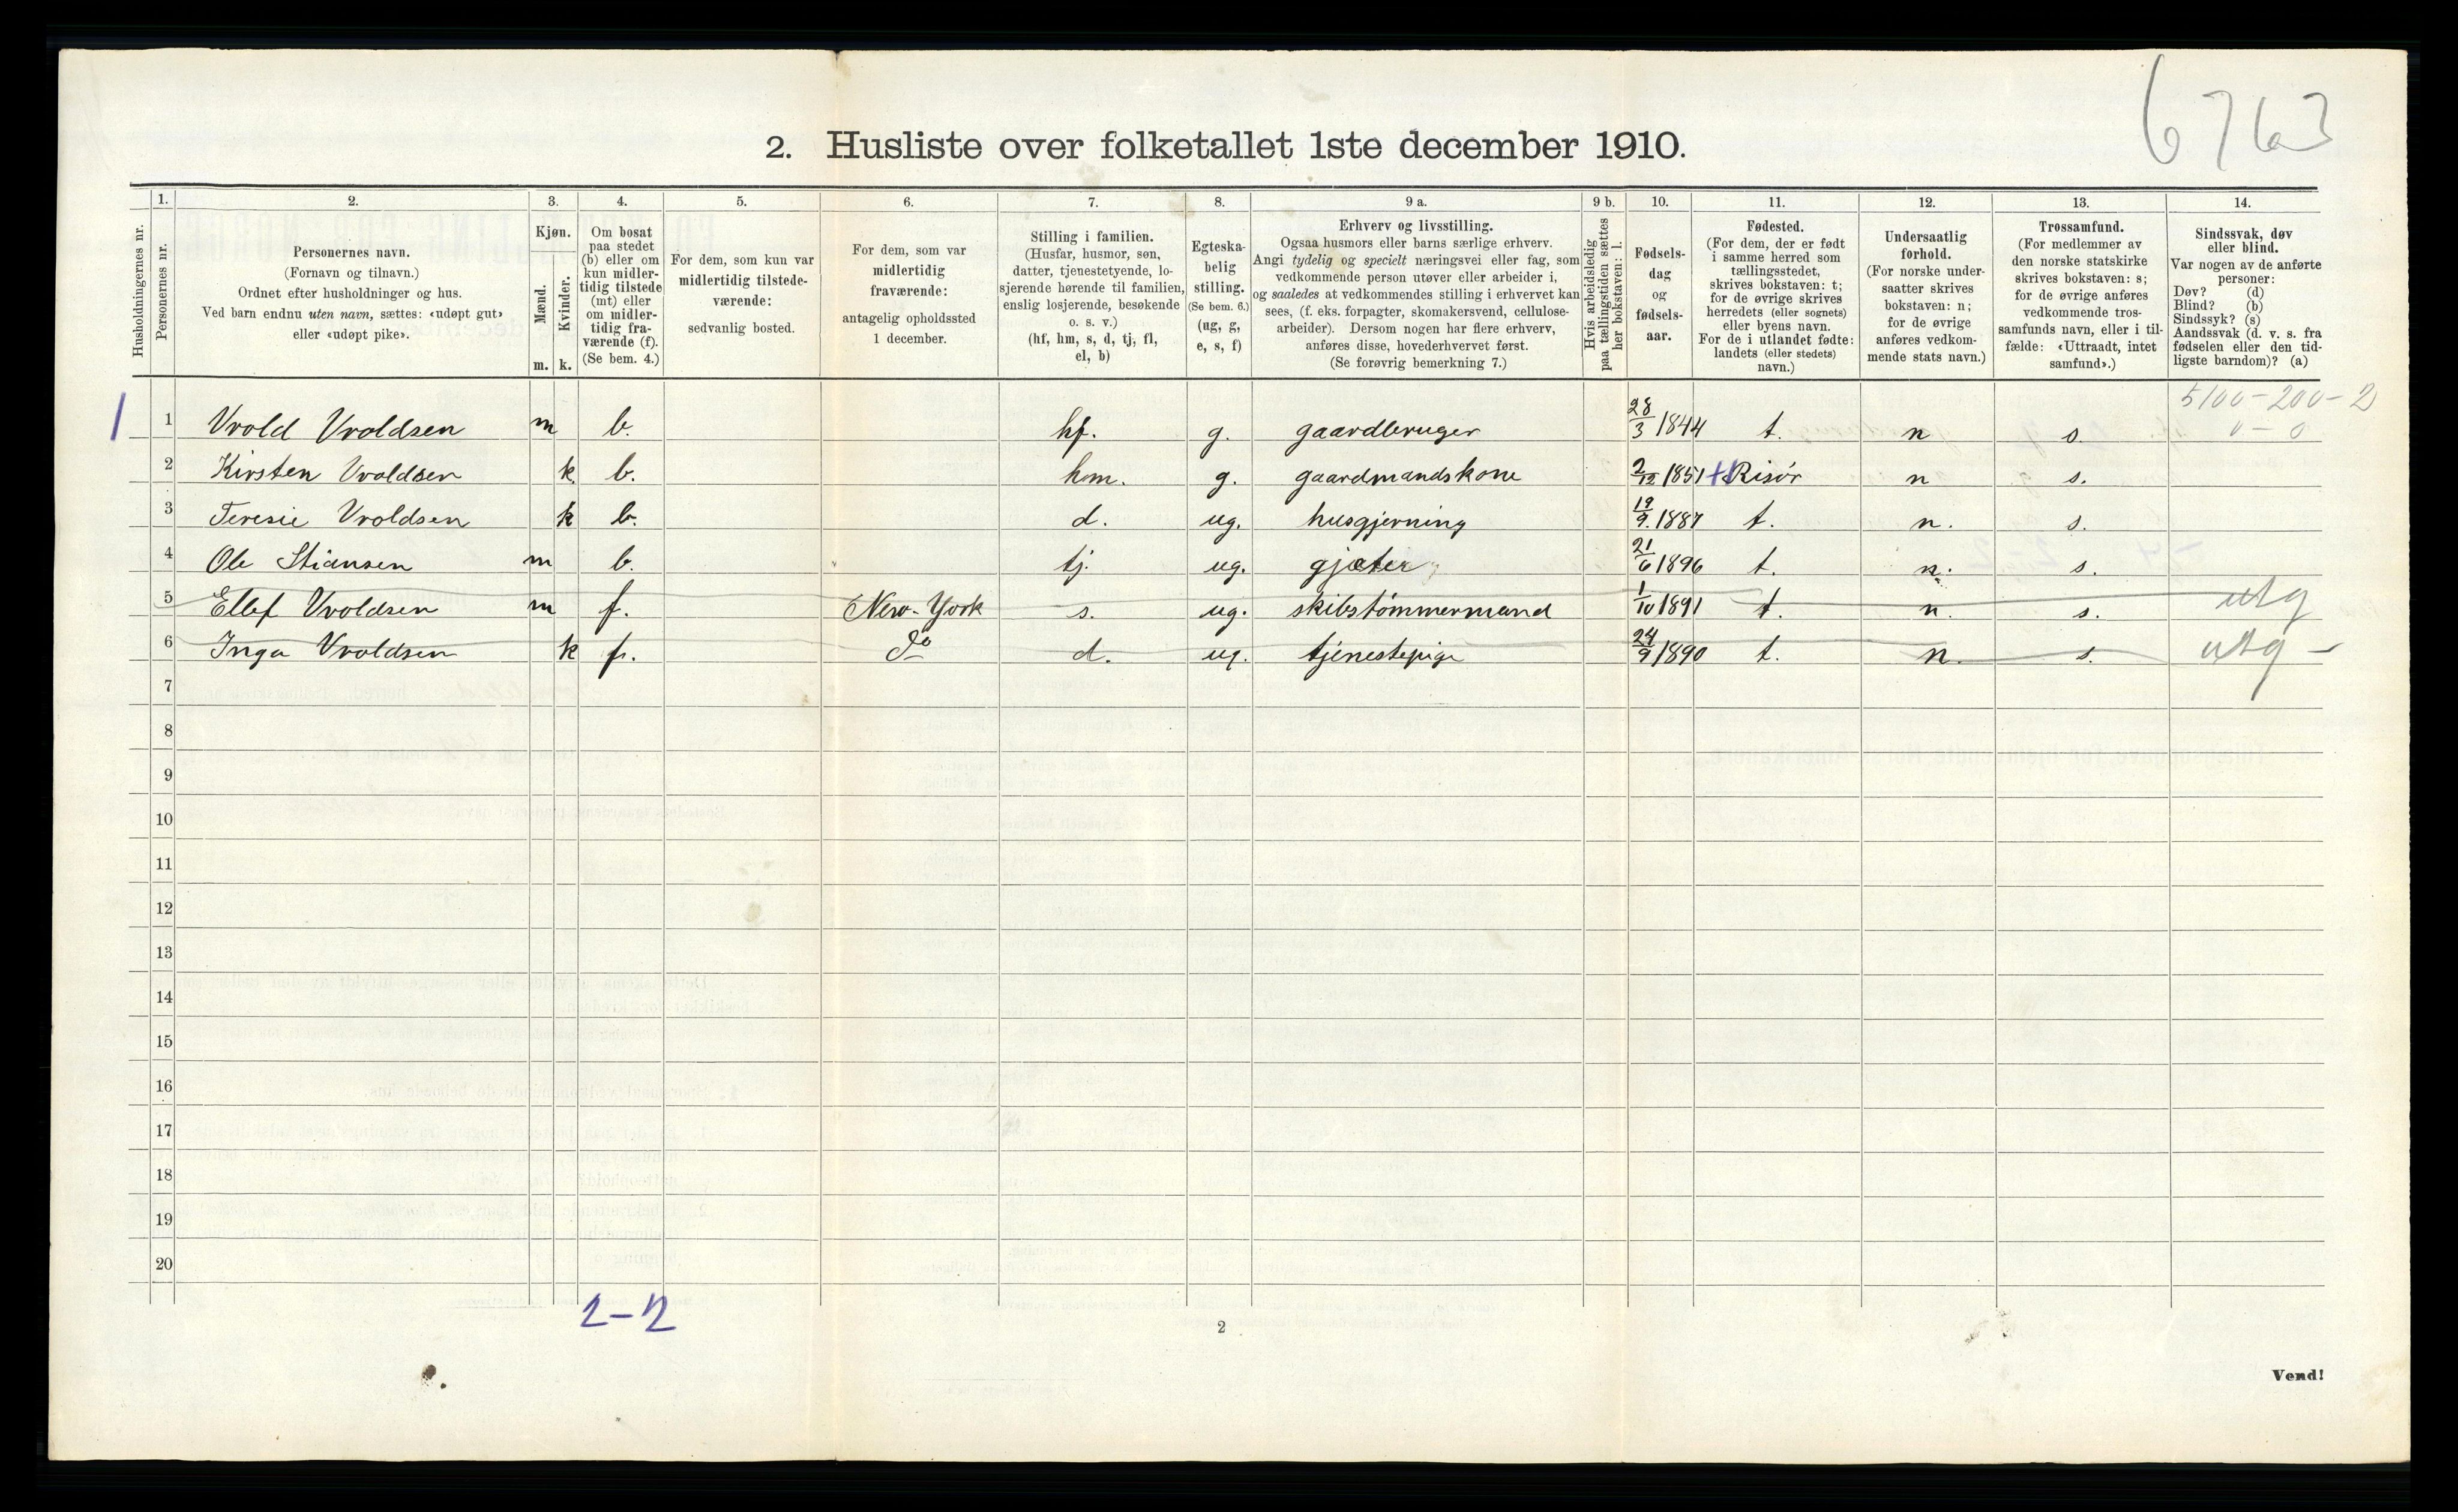 6763
2. Husliste over folketallet 1ste december 1910.
Husholdningernes nr.
1.
Personernes nr.
2.
Personernes navn.
(Fornavn og tilnavn.)
Ordnet efter husholdninger og hus.
Ved barn endnu uten navn, sættes: «udøpt gut»
eller «udøpt pike».
3.
Kjøn.
Mænd.
Kvinder.
m. k.
4.
Om bosat
paa stedet
(b) eller om
kun midler-
tidig tilstede
(mt) eller
om midler-
tidig fra-
værende (f).
(Se bem. 4.)
5.
For dem, som kun var
midlertidig tilstede-
værende:
sedvanlig bosted.
6.
For dem, som var
midlertidig
fraværende:
antagelig opholdssted
1 december.
7.
Stilling i familien.
(Husfar, husmor, søn,
datter, tjenestetyende, lo-
sjerende hørende til familien,
enslig losjerende, besøkende
o. s. v.)
(hf, hm, s, d, tj, fl,
el, b)
8.
Egteska-
belig
stilling.
(Se bem. 6.)
(ug, g,
e, s, f)
9 a.
Erhverv og livsstilling.
Ogsaa husmors eller barns særlige erhverv.
Angi tydelig og specielt næringsvei eller fag, som
vedkommende person utøver eller arbeider i,
og saaledes at vedkommendes stilling i erhvervet kan
sees, (f. eks. forpagter, skomakersvend, cellulose-
arbeider). Dersom nogen har flere erhverv,
anføres disse, hovederhvervet først.
(Se forøvrig bemerkning 7.)
9 b.
Hvis arbeidsledig
paa tællingstiden sættes
her bokstaven: l.
10.
Fødsels-
dag
og
fødsels-
aar.
11.
Fødested.
(For dem, der er født
i samme herred som
tællingsstedet,
skrives bokstaven: t;
for de øvrige skrives
herredets (eller sognets)
eller byens navn.
For de i utlandet fødte:
landets (eller stedets)
navn.)
12.
Undersaatlig
forhold.
(For norske under-
saatter skrives
bokstaven: n;
for de øvrige
anføres vedkom-
mende stats navn.)
13.
Trossamfund.
(For medlemmer av
den norske statskirke
skrives bokstaven: s;
for de øvrige anføres
vedkommende tros-
samfunds navn, eller i til-
fælde: «Uttraadt, intet
samfund».)
14.
Sindssvak, døv
eller blind.
Var nogen av de anførte
personer:
Døv? (d)
Blind? (b)
Sindssyk? (s)
Aandssvak (d. v. s. fra
fødselen eller den tid-
ligste barndom)? (a)
5100-200-2
0-0
1 1 Vrold Vroldsen m b. hf. g. gaardbruger 28/3 1844 t. n s.
2 Kirsten Vroldsen k. b. hm. g. gaardmandskone 2/12 1851 Risør n s.
3 Teresie Vroldsen k b. d. ug. husgjerning 19/9. 1887 t. n. s.
4 Ole Stiansen m b. tj. ug. gjæter 21/6 1896 t. n. s.
5 Ellef Vroldsen m f. New-York s. ug. skibstømmermand 1/10 1891 t. n. s. utg
6 Inga Vroldsen k f. Do d. ug. tjenestepige 24/9 1890 t. n. s. utg -
7
8
9
10
11
12
13
14
15
16
17
18
19
20
2-2
2
Vend!